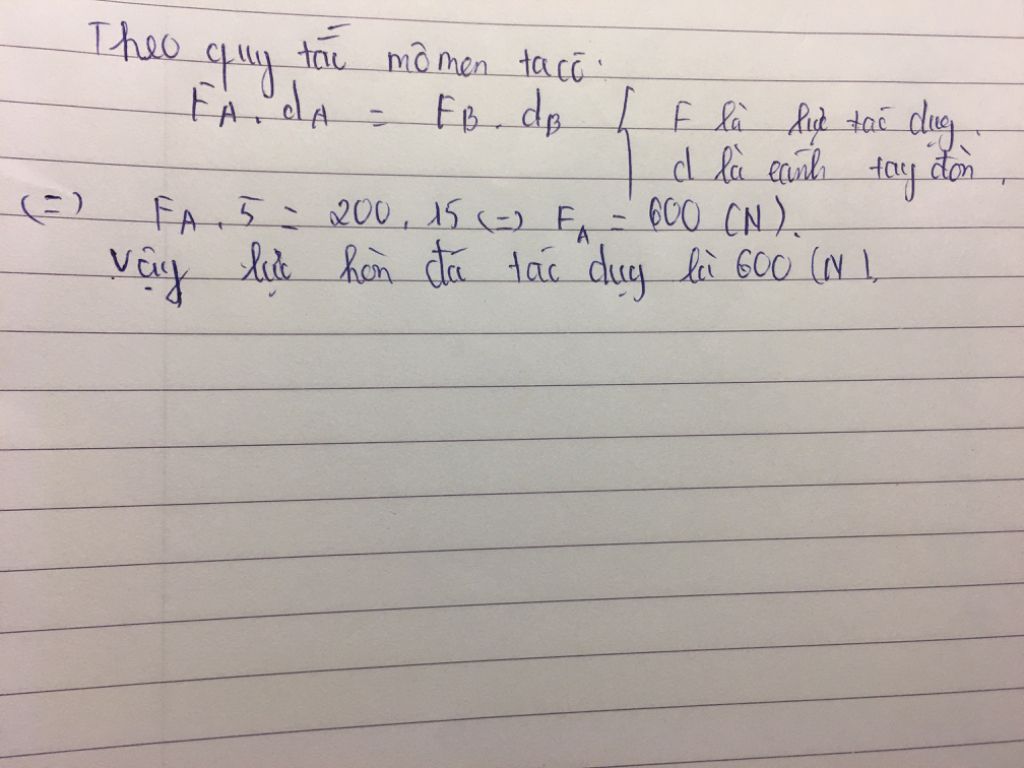 Theo quy tắc mômen ta có:
FA. dA = FB. dB { F là lực tác dụng.
d là cánh tay đòn.
(=) FA. 5 = 200. 15 (=) FA = 600 (N).
Vậy lực hòn đá tác dụng là 600 (N).